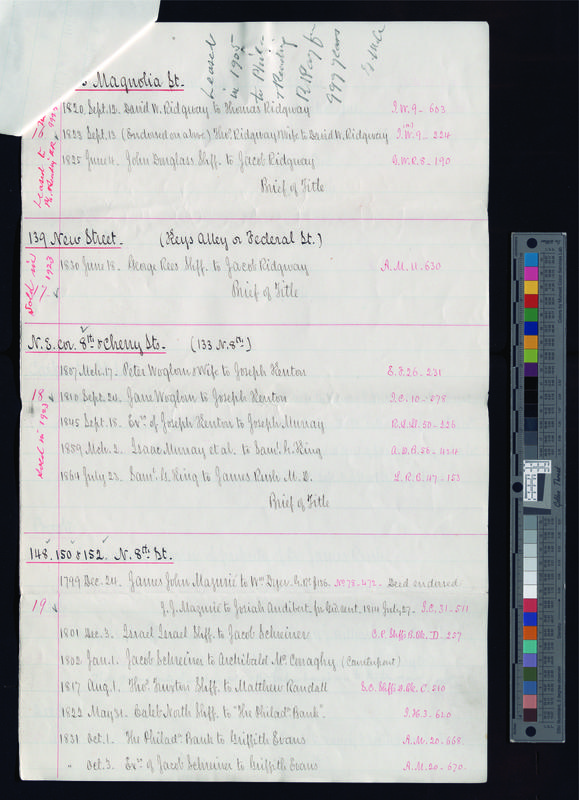 Leased
in 1905
to Phil.
& Reading
R. R'way fr
999 years
Magnolia St.
1820 Sept. 12. David W. Ridgway to Thomas Ridgway I.W. 9 - 603
1823 Sept. 13 (Endorsed on above) Thos. Ridgway & Wife to David W. Ridgway I.W. 9 - 224
1825 June 4. John Douglass Shff. to Jacob Ridgway G.W.R. 8 - 190
Brief of Title
139 New Street. (Keys Alley or Federal St.)
Sold in 1923
1830 June 18. George Rees Shff. to Jacob Ridgway A.M. 11 - 630
Brief of Title
N.E. cor. 8th & Cherry Sts. (133 N. 8th)
1807 Mch. 17. Peter Woglom & Wife to Joseph Kenton E.F. 26 - 231
18 1810 Sept. 24. Jane Woglom to Joseph Kenton I.C. 10 - 578
1845 Sept. 18. Exrs. of Joseph Kenton to Joseph Murray
1859 Mch. 2. Isaac Murray et al. to Saml. G. King A.D.B. 56 - 424
1864 July 23. Saml. G. King to James Rush M.D. L.R.B. 47 - 153
Brief of Title
148. 150 & 152. N. 8th St.
1799 Dec. 24. James John Mazurie to Wm. Dyer No. 78 - 472 - Deed endorsed
19 J.J. Mazurie to Josiah Audibert for Gd. rent. 1814 July 27. I.C. 31 - 511
1801 Dec. 3. Israel Israel Shff. to Jacob Schreiner C.P. Shff's D. Bk. D. 257
1802 Jan. 1. Jacob Schreiner to Archibald Mc. Conaghy (Counterpart)
1817 Aug. 1. Thos. Truxton Shff. to Matthew Randall S.C. Shff's D. Bk. C. 210
1822 May 31. Caleb North Shff. to "The Philada. Bank". I.H. 3 - 620
1831 Oct. 1. The Philada. Bank to Griffith Evans A.M. 20 - 668.
" Oct. 3. Exrs. of Jacob Schreiner to Griffith Evans A.M. 20 - 670.